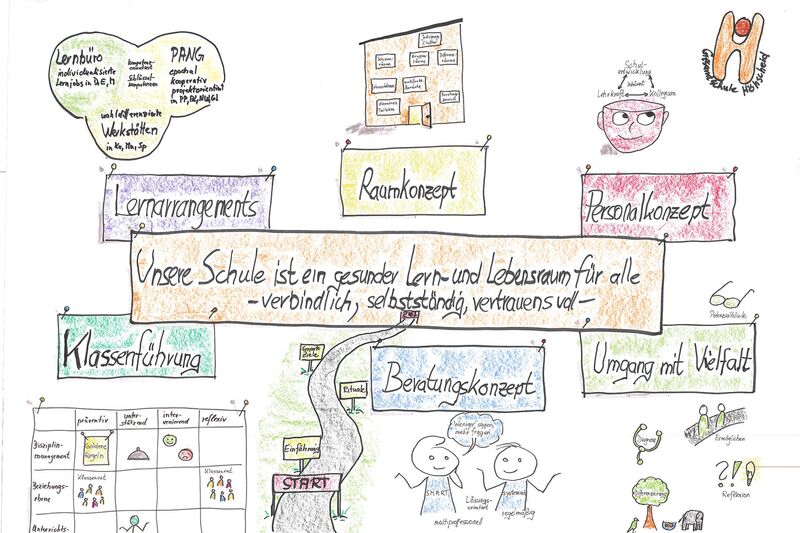 Lernbüro
individualisierte
Lernjobs in D, E, M
kompetenz-
orientiert
Schlüssel-
kompetenzen
PANG
epochal
kooperativ
projektorientiert
wahldifferenzierte
Werkstätten
in Ku, Mu, Sp
Klassen-
räume
Gruppen-
räume
Differen.
räume
Schul-
entwicklung
Lehrkraft
Kollegium
Gesamtschule Höhscheid
Lernarrangements
Raumkonzept
Personalkonzept
Unsere Schule ist ein gesunder Lern- und Lebensraum für alle
- verbindlich, selbstständig, vertrauensvoll -
Klassenführung
Beratungskonzept
Umgang mit Vielfalt
Potenzialblick
ZIEL
Smarte
Ziele
Rituale
Einführung
START
präventiv
unter-
stützend
inter-
venierend
reflexiv
Disziplin-
management
Goldene
Regeln
Beziehungs-
ebene
Klassenrat
Klassenrat
Unterrichts-
Weniger sagen,
mehr fragen
SMART
Lösungs-
orientiert
systemisch
multiprofessionell
regelmäßig
Diagnose
Ermöglichen
Differenzierung
Reflexion